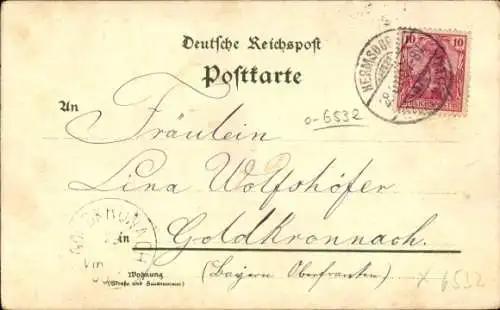 Deutsche Reichspost
Postkarte
10 10
HERMSDORF
o-6532
An
Fräulein
Lina Wolfshöfer
GOLDKRONACH
in Goldkronnach.
(Bayern Oberfranken)
Wohnung
(Straße und Hausnummer)
x 6532